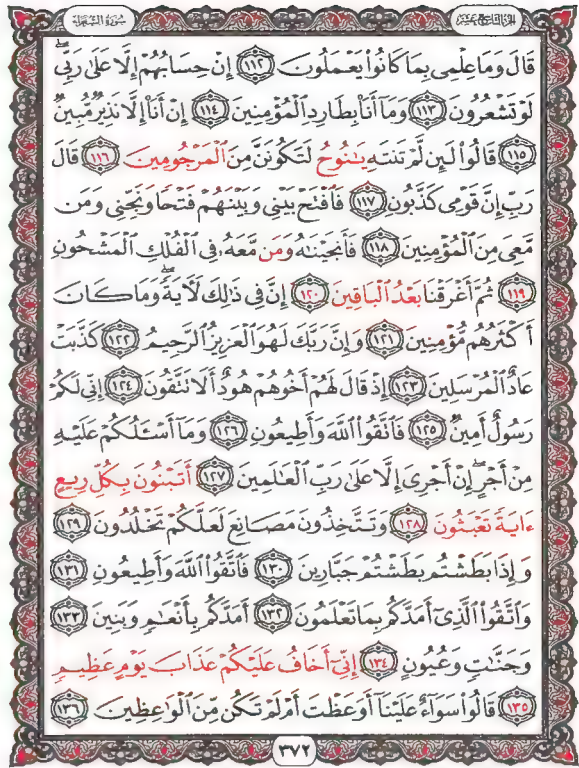 الجزء التاسع عشر
سورة الشعراء
قَالَ وَمَا عِلْمِى بِمَا كَانُوا۟ يَعْمَلُونَ ﴿١١٢﴾ إِنْ حِسَابُهُمْ إِلَّا عَلَىٰ رَبِّىۖ
لَوْ تَشْعُرُونَ ﴿١١٣﴾ وَمَآ أَنَا۠ بِطَارِدِ ٱلْمُؤْمِنِينَ ﴿١١٤﴾ إِنْ أَنَا۠ إِلَّا نَذِيرٌ مُّبِينٌ
﴿١١٥﴾ قَالُوا۟ لَئِن لَّمْ تَنتَهِ يَـٰنُوحُ لَتَكُونَنَّ مِنَ ٱلْمَرْجُومِينَ ﴿١١٦﴾ قَالَ
رَبِّ إِنَّ قَوْمِى كَذَّبُونِ ﴿١١٧﴾ فَٱفْتَحْ بَيْنِى وَبَيْنَهُمْ فَتْحًا وَنَجِّنِى وَمَن
مَّعِىَ مِنَ ٱلْمُؤْمِنِينَ ﴿١١٨﴾ فَأَنجَيْنَـٰهُ وَمَن مَّعَهُۥ فِى ٱلْفُلْكِ ٱلْمَشْحُونِ
﴿١١٩﴾ ثُمَّ أَغْرَقْنَا بَعْدُ ٱلْبَاقِينَ ﴿١٢٠﴾ إِنَّ فِى ذَٰلِكَ لَـَٔايَةًۖ وَمَا كَانَ
أَكْثَرُهُم مُّؤْمِنِينَ ﴿١٢١﴾ وَإِنَّ رَبَّكَ لَهُوَ ٱلْعَزِيزُ ٱلرَّحِيمُ ﴿١٢٢﴾ كَذَّبَتْ
عَادٌ ٱلْمُرْسَلِينَ ﴿١٢٣﴾ إِذْ قَالَ لَهُمْ أَخُوهُمْ هُودٌ أَلَا تَتَّقُونَ ﴿١٢٤﴾ إِنِّى لَكُمْ
رَسُولٌ أَمِينٌ ﴿١٢٥﴾ فَٱتَّقُوا۟ ٱللَّهَ وَأَطِيعُونِ ﴿١٢٦﴾ وَمَآ أَسْـَٔلُكُمْ عَلَيْهِ
مِنْ أَجْرٍۖ إِنْ أَجْرِىَ إِلَّا عَلَىٰ رَبِّ ٱلْعَـٰلَمِينَ ﴿١٢٧﴾ أَتَبْنُونَ بِكُلِّ رِيعٍ
ءَايَةً تَعْبَثُونَ ﴿١٢٨﴾ وَتَتَّخِذُونَ مَصَانِعَ لَعَلَّكُمْ تَخْلُدُونَ ﴿١٢٩﴾
وَإِذَا بَطَشْتُم بَطَشْتُمْ جَبَّارِينَ ﴿١٣٠﴾ فَٱتَّقُوا۟ ٱللَّهَ وَأَطِيعُونِ ﴿١٣١﴾
وَٱتَّقُوا۟ ٱلَّذِىٓ أَمَدَّكُم بِمَا تَعْلَمُونَ ﴿١٣٢﴾ أَمَدَّكُم بِأَنْعَـٰمٍ وَبَنِينَ ﴿١٣٣﴾
وَجَنَّـٰتٍ وَعُيُونٍ ﴿١٣٤﴾ إِنِّىٓ أَخَافُ عَلَيْكُمْ عَذَابَ يَوْمٍ عَظِيمٍ
﴿١٣٥﴾ قَالُوا۟ سَوَآءٌ عَلَيْنَآ أَوَعَظْتَ أَمْ لَمْ تَكُن مِّنَ ٱلْوَٰعِظِينَ ﴿١٣٦﴾
٣٧٢